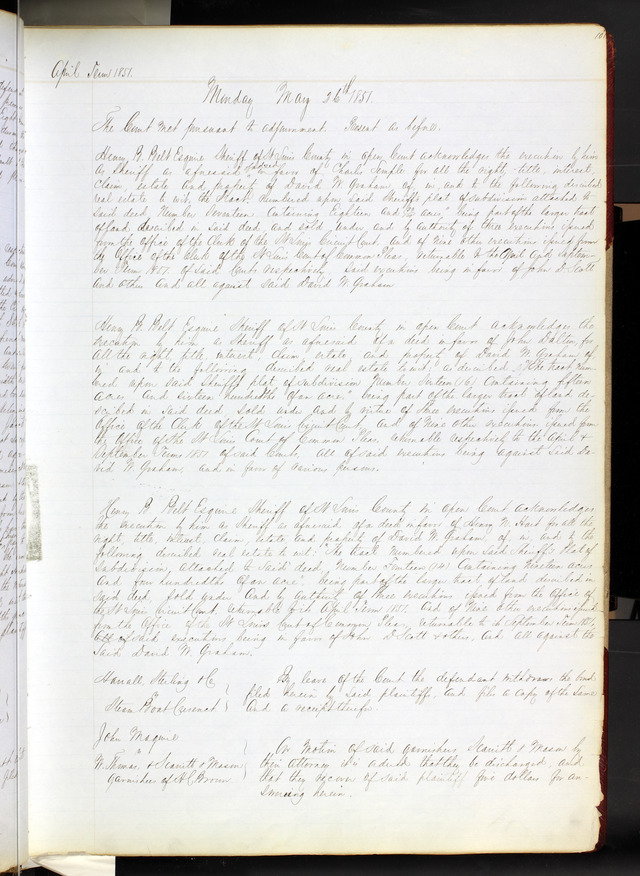 101
April Term 1851.
Monday May 26th 1851.
The Court met pursuant to adjournment. Present as before.
Henry B Belt Esquire Sheriff of St Louis County in open Court acknowledges the execution by him
as Sheriff as aforesaid of a deed in favor of Charles Semple for all the right, title, interest,
claim, estate and property of David W. Graham, of, in, and to the following described
real estate to wit, the tract numbered upon said Sheriffs plat of subdivision attached to
said deed Number Seventeen containing Eighteen and acres, being part of the larger tract
of land described in said deed, and sold under and by authority of three executions issued
from the Office of the Clerk of the St Louis Circuit Court, and of Nine other executions issued from
the Office of the Clerk of the St Louis Court of Common Pleas, returnable to the April and Septem-
ber Terms 1851. of said Courts respectively. Said executions being in favor of John D Scott
and others and all against said David W Graham
Henry B. Belt Esquire Sheriff of St Louis County in open Court acknowledges the
execution by him as Sheriff as aforesaid of a deed in favor of John for
all the right, title, interest, claim, estate, and property of David W. Graham of,
in, and to the following described real estate to wit, as described, "The tract num-
bered upon said Sheriffs plat of subdivision Number Sixteen (16) Containing fifteen
acres and sixteen hundredths of an acre," being part of the larger tract of land de-
scribed in said deed, sold under and by virtue of three executions issued from the
Office of the Clerk of the St Louis Circuit Court, and of Nine other executions issued from
the Office of the St Louis Court of Common Pleas, returnable respectively to the April &
September Terms 1851 of said Courts, all of said executions being against said Da-
vid W. Graham, and in favor of various persons.
Henry B Belt Esquire Sheriff of St Louis County in open Court acknowledges
the execution by him as Sheriff as aforesaid of a deed in favor of Henry W. Hart for all the
right, title, interest, claim, estate, and property of David W. Graham, of, in, and to the
following described real estate to wit: "The tract numbered upon said Sheriffs Plat of
Subdivision, attached to said deed, Number fourteen (14) Containing Nineteen acres
and four hundredths of an acre," being part of the larger tract of land described in
said deed, sold under and by authority of three executions issued from the Office of
the St Louis Circuit Court, returnable to its April Term 1851. And of Nine other executions issued
from the Office of the St Louis Court of Common Pleas, returnable to its September Term 1851,
all of said executions being in favor of John D Scott & others, and all against the
said David W. Graham.
Harrall Sterling & Co. } By leave of the Court the defendant withdraws the bond
vs filed herein by said plaintiffs, and files a copy of the same
Steam Boat } and a receipt therefor
John Maguire
vs } On Motion of said garnishees Scarritt & Mason by
W. & Scarritt & Mason their attorney it is ordered that they be discharged, and
Garnishees of H. C. Brown } that they recover of said plaintiff five dollars for an-
swering herein.